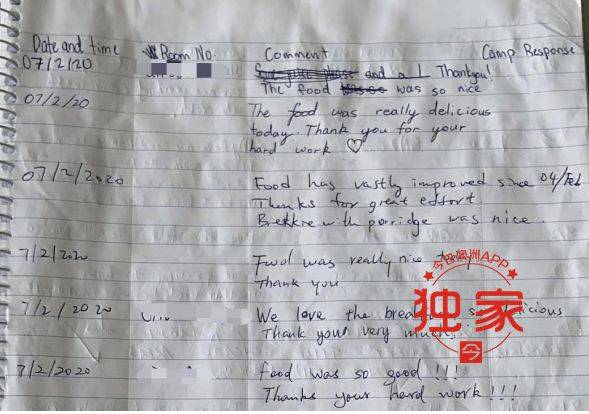 Date and time Room No. Comment Camp Response
07/2/20 and a Thankyou!
The food was so nice
07/2/20 The food was really delicious
today. Thank you for your
hard work ♡
07/2/2020 Food has vastly improved since 04/Feb
Thanks for great effort
Brekkie with porridge was nice.
7/2/2020 Food was really nice
Thank you
7/2/2020 We love the
Thank your very much.
7/2/2020 Food was so good!!!
Thanks your hard work!!!
今日澳洲APP
独家
今